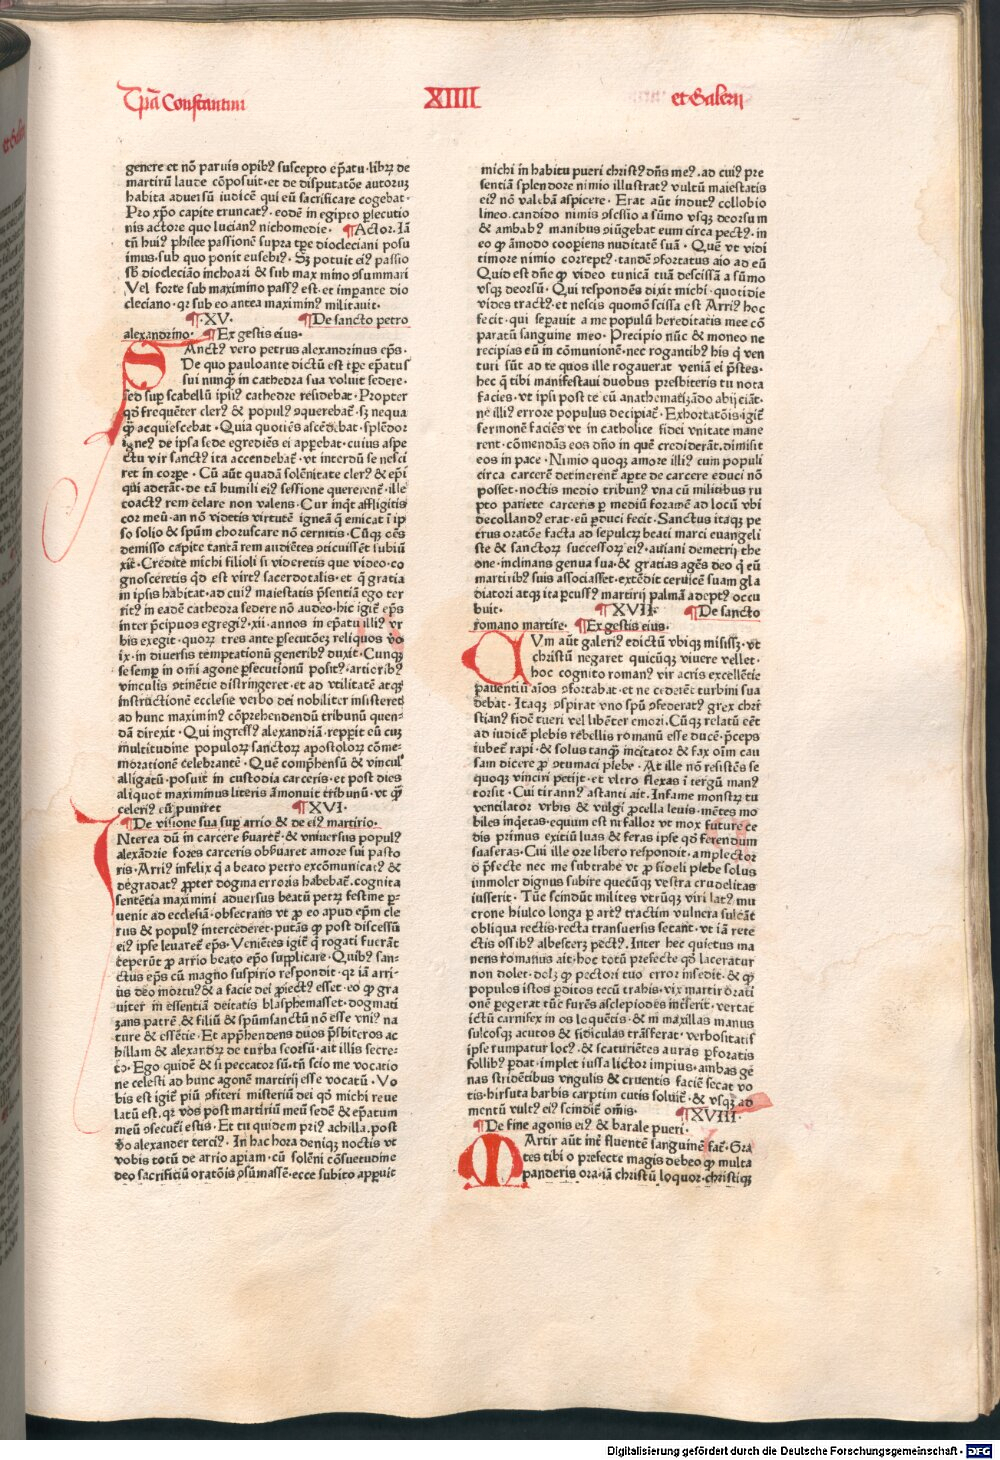 Tꝑa Constantini XIIII et Galerii
genere et nõ paruis opibꝰ suscepto ep̃atu·librꝫ de
martirũ laude cõposuit·et de disputatõe autoruꝫ
habita aduersũ iudicẽ qui eũ sacrificare cogebat·
Pro xp̃o capite truncatꝰ· eodẽ in egipto ꝑlecutio
nis actore quo lucianꝰ nichomedie· ¶Actor·Iã
tñ huiꝰ philee passionẽ supra tꝑe diocleciani posu
imus·sub quo ponit eusebiꝰ· Sꝫ potuit eiꝰ passio
sb̃ dioclecião inchoari & sub maximino ↄsummari
Vel forte sub maximino passꝰ est·et imꝑante dio
cleciano·qꝛ sub eo antea maximinꝰ militauit·
¶·XV· ¶De sancto petro
alexandrino· ¶Ex gestis eius·
SAnctꝰ vero petrus alexandrinus ep̃s·
De quo pauloante dictũ est tꝑe ep̃atus
sui nunqꝫ in cathedra sua voluit sedere·
sed suꝑ scabellũ ipsiꝰ cathedre residebat·Propter
qð frequẽter clerꝰ & populꝰ ↄquerebaт̃·sꝫ nequa
qꝫ acquiescebat·Quia quotiẽs ascẽdebat·splẽdor
igneꝰ de ipsa sede egrediẽs ei apꝑebat·cuius aspe
ctu vir sanctꝰ ita accendebaт̃·vt interdũ se nesci
ret in corꝑe· Cũ aũt quadã solẽnitate clerꝰ & ep̃i
qui aderãt·de tã humili eiꝰ sessione quererenт̃·ille
coactꝰ rem celare non valens·Cur inqͥt affligitis
cor meũ·an nõ videtis virtutẽ igneã q̃ emicat ĩ ip
so solio & sp̃um choruscare nõ cernitis·Cũqꝫ oẽs
demisso capite tantã rem audiẽtes ↄticuissẽt subiũ
xit·Credite michi filioli si videretis que video·co
gnosceretis qð est virtꝰ sacerdotalis·et q̃ gratia
in ipsis habitat·ad cuiꝰ maiestatis p̃sentiã ego ter
ritꝰ in eadẽ cathedra sedere nõ audeo·hic igiт̃ ep̃s
inter p̃cipuos egregiꝰ·xii·annos in ep̃atu illiꝰ vr
bis exegit·quorꝫ tres ante ꝑsecutõeꝫ reliquos ỽo
ix·in diuersis temptationũ generibꝰ duxit·Cunqꝫ
se semꝑ in om̃i agone ꝑsecutionũ positꝰ·artioribꝰ
vinculis ↄtinẽtie distringeret·et ad vtilitatẽ atqꝫ
instructionẽ ecclesie verbo dei nobiliter insisteret
ad hunc maximinꝰ cõprehendendũ tribunũ quen
dã direxit·Qui ingressꝰ alexandriã·repꝑit eũ cuꝫ
multitudine populorꝫ sanctorꝫ apostolorꝫ cõme-
morationẽ celebrantẽ· Quẽ comp̃hensũ & vinculꝰ
alligatũ·posuit in custodia carceris·et post dies
aliquot maximinus literis ãmonuit tribunũ·vt q̃
celeriꝰ eũ puniret ¶XVI·
¶De visione sua suꝑ arrio & de eiꝰ martirio·
INterea dũ in carcere ẽuareт̃·& vniuersus populꝰ
alexãdrie fores carceris obẽuaret amore sui pasto
ris·Arriꝰ infelix q̃ a beato petro excõmunicatꝰ &
degradatꝰ ꝓpter dogma erroris habebaт̃·cognita
sentẽtia maximini aduersus beatũ petrꝫ festine ꝑ-
uenit ad ecclesiã·obsecrans vt ꝓ eo apud ep̃m cle
rus & populꝰ intercederet·putãs qꝫ post discessũ
eiꝰ ipse leuareт̃ ep̃s·Veniẽtes igiт̃ q̃ rogati fuerãt
ceperũt ꝓ arrio beato ep̃o supplicare·Quibꝰ san-
ctus ep̃s cũ magno suspirio respondit·qꝛ iã arri-
us deo mortuꝰ & a facie dei ꝓiectꝰ esset·eo qꝫ gra
uiter in essentiã deitatis blasphemasset·dogmati
zans patrẽ & filiũ & sp̃umsanctũ nõ esse vniꝰ na
ture & essẽtie·Et app̃hendens duos p̃sbiteros ac
hillam & alexandrꝫ de turba seorsũ·ait illis secre-
to·Ego quidẽ & si peccator sũ·tñ scio me vocatio
ne celesti ad hunc agonẽ martirij esse vocatũ·Vo
bis est igiт̃ piũ ↄfiteri misteriũ dei qð michi reue
latũ est·qꝛ vos post martiriũ meũ sedẽ & ep̃atum
meũ ↄsecuti estis·Et tu quidem priꝰ achilla·post
ỽo alexander terciꝰ·In hac hora deniqꝫ noctis vt
vobis totũ de arrio apiam·cũ solẽni cõsuetudine
deo sacrificiũ oratõis ↄsũmassẽ·ecce subito apꝑuit
michi in habitu pueri christꝰ dñs meꝰ·ad cuiꝰ pre
sentiã splendore nimio illustratꝰ vultũ maiestatis
eiꝰ nõ valebã aspicere· Erat aũt indutꝰ collobio
lineo·candido nimis ↄscisso a sũmo vsqꝫ deorsum
& ambabꝰ manibus ↄiũgebat eum circa pectꝰ·in
eo q̃ ãmodo cooꝑiens nuditatẽ suã· Quẽ vt vidi
timore nimio correptꝰ·tandẽ ↄfortatus aio ad eũ
Quid est dñe q̃ video tunicã tuã descissã a sũmo
vsqꝫ deorsũ·Qui respondẽs dixit michi·quotidie
vides tractꝰ·et nescis quomõ scissa est Arriꝰ hoc
fecit·qui seꝑauit a me populũ hereditatis mee cõ
paratũ sanguine meo·Precipio nũc & moneo ne
recipias eũ in cõmunionẽ·nec rogantibꝰ his q̃ ven
turi sũt ad te quos ille rogauerat veniã ei p̃stes·
hec q̃ tibi manifestaui duobus presbiteris tu nota
facies·vt ipsi post te eũ anathematizãdo abijciãт̃·
ne illiꝰ errore populus decipiaт̃·Exhortatõis igiт̃
sermonẽ faciẽs vt in catholice fidei vnitate mane
rent·cõmendãs eos dño in quẽ crediderãt·dimisit
eos in pace·Nimio quoqꝫ amore illiꝰ cum populi
circa carcerẽ detinerenт̃ aꝑte de carcere educi nõ
posset·noctis medio tribunꝰ vna cũ militibus ru
pto pariete carceris ꝑ mediũ foramẽ ad locũ vbi
decollandꝰ erat·eũ ꝑduci fecit·Sanctus itaqꝫ pe
trus oratõe facta ad sepulcrꝫ beati marci euangeli
ste & sanctorꝫ successorꝫ eiꝰ·auiani demetrij the
one·inclinans genua sua·& gratias agẽs deo q̃ eũ
martiribꝰ suis associasset·extẽdit ceruicẽ suam gla
diatori atqꝫ ita ꝑcussꝰ martirij palmã adeptꝰ occu
buit· ¶XVII· ¶De sancto
romano martire· ¶Ex gestis eius·
CVm aũt galeriꝰ edictũ vbiqꝫ misissꝫ·vt
christũ negaret quicũqꝫ viuere vellet·
hoc cognito romanꝰ vir acris excellẽtie
pauentiũ aĩos ↄfortabat·et ne cederẽt turbini sua
debat·Itaqꝫ ↄspirat vno spũ ↄfederatꝰ grex chri
stianꝰ fidẽ tueri vel libẽter emori·Cũqꝫ relatũ eẽt
ad iudicẽ plebis rebellis romanũ esse ducẽ·p̃ceps
iubeт̃ rapi·& solus tanqꝫ incitator & fax oĩm cau
sam dicere ꝓ ↄtumaci plebe·At ille nõ resistẽs se
quoqꝫ vinciri petijt·et vltro flexas ĩ tergũ manꝰ
torsit·Cui tirannꝰ astanti ait·Infame monstrꝫ tu
ventilator vrbis & vulgi ꝓcella leuis·mẽtes mo
biles inqͥetas·equum est ni fallor vt mox future ce
dis primus exitiũ luas & feras ipse qð ferendum
suaseras·Cui ille ore libero respondit·amplector
o p̃fecte nec me subtrahe vt ꝓ fideli plebe solus
immoler dignus subire quecũqꝫ vestra crudelitas
iusserit·Tũc scindũt milites vtrũqꝫ viri latꝰ mu
crone hiulco longa ꝑ artꝰ tractim vulnera sulcãt
obliqua rectis·recta transuersis secãnt·vt iã rete
ctis ossibꝰ albesceꝛꝫ pectꝰ·Inter hec quietus ma
nens romanus ait·hoc totũ prefecte qð laceratur
non dolet·dolꝫ qꝫ pectori tuo error insedit·& qꝫ
populos istos ꝑditos tecũ trabis·vix martir orati
onẽ ꝑegerat tũc furẽs asclepiodes inẽserit·vertat
ictũ carnifex in os loquẽtis·& ni maxillas manus
sulcosqꝫ acutos & fidiculas trãsferat·verbositatis
ipse rumpatur locꝰ·& scaturiẽtes auras ꝑforatis
follibꝰ ꝑdat·implet iussa lictor impius·ambas ge
nas stridẽtibus vngulis & cruentis faciẽ secat no
tis·hirsuta barbis carptim cutis soluiт̃·& vsqꝫ ad
mentũ vultꝰ eiꝰ scindiт̃ om̃is· ¶XVIII·
¶De fine agonis eiꝰ & barale pueri·
MArtir aũt inт̃ fluentẽ sanguinẽ faт̃·Gra
tes tibi o prefecte magis debeo qꝫ multa
panderis ora·iã christũ loquor·christiqꝫ
Digitalisierung gefördert durch die Deutsche Forschungsgemeinschaft · DFG